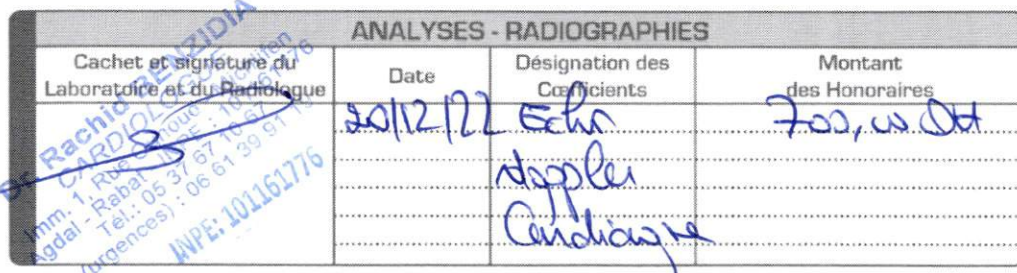 ANALYSES - RADIOGRAPHIES
Cachet et signature du
Laboratoire et du Radiologue
Date
Désignation des
Cœfficients
Montant
des Honoraires
Dr. Rachid BENZIDIA
CARDIOLOGUE
Imm. 1, Rue
Agdal - Rabat INPE : 101161776
Tél.: 05 37 67 10 67
(urgences) : 06 61 39 91 13
INPE: 101161776
20/12/22 Echo 700,00 DH
doppler
Cardiaque